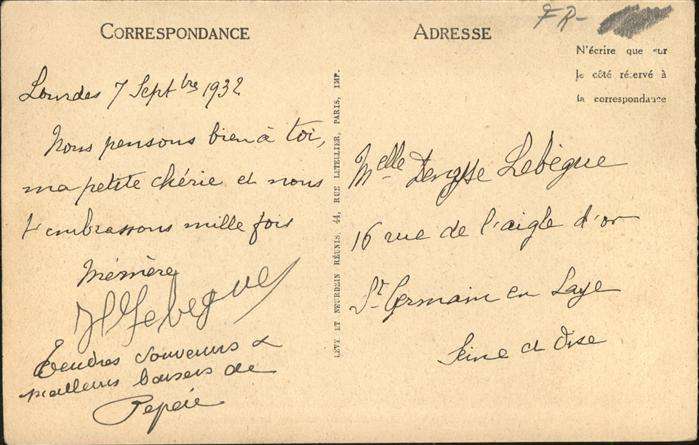 CORRESPONDANCE
Lourdes 7 Septbre 1932
Nous pensons bien à toi,
ma petite chérie et nous
t'embrassons mille fois
Mémère
HLebègue
Tendres souvenirs &
meilleurs baisers de
Pepère
LÉVY ET NEURDEIN RÉUNIS, 44, RUE LETELLIER, PARIS, IMP.
ADRESSE
FR-
N'écrire que sur
le côté réservé à
la correspondance
Melle Denyse Lebègue
16 rue de l'aigle d'or
St Germain en Laye
Seine et Oise